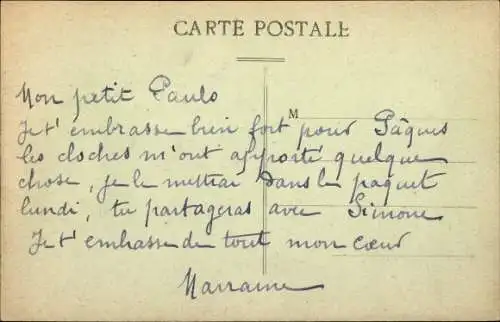 CARTE POSTALE
Mon petit Paulo
M
Je t'embrasse bien fort pour Pâques
les cloches m'ont apporté quelque
chose, je le mettrai dans le paquet
lundi, tu partageras avec Simone
Je t'embrasse de tout mon cœur
Marraine